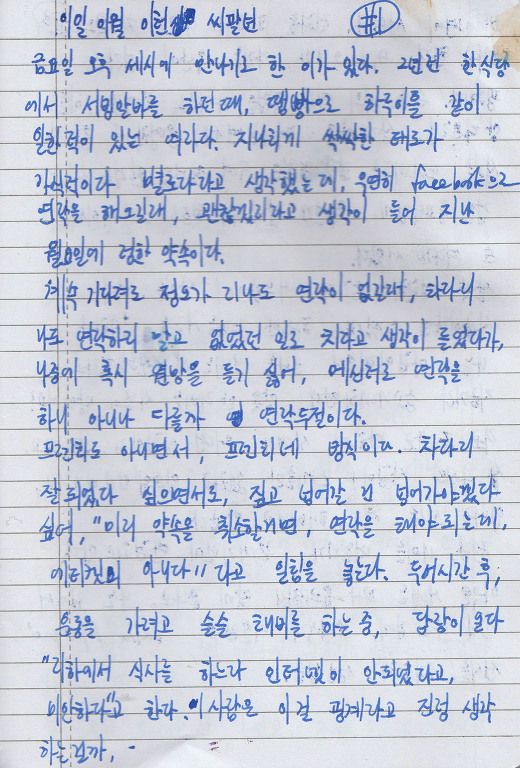 이일 이월 이런 씨팔년 #1
금요일 오후 세시에 만나기로 한 이가 있다. 2년전 한식당
에서 서빙알바를 하던때, 땜빵으로 하루이틀 같이
일한적이 있는 여자다. 지나치게 싹싹한 태도가
가식적이다 별로다라고 생각했는데, 우연히 facebook으로
연락을 해오길래, 괜찮겠지라고 생각이 들어 지난
월요일에 정한 약속이다.
계속 기다려도 정오가 지나도 연락이 없길래, 차라리
나도 연락하지 말고 없었던 일로 치자고 생각이 들었다가,
나중에 혹시 원망을 듣기 싫어, 메신저로 연락을
하니 아니나 다를까 연락두절이다.
프린치도 아니면서, 프린치네 방식이다. 차라리
잘되었다 싶으면서도, 짚고 넘어갈 건 넘어가야겠다
싶어, "미리 약속을 취소할거면, 연락을 해야되는데,
에티켓이 아니다" 라고 일침을 놓는다. 두어시간 후,
운동을 가려고 슬슬 채비를 하는 중, 답장이 온다
"지하에서 식사를 하느라 인터넷이 안되었다고,
미안하다"고 한다. 이사람은 이걸 핑계라고 진정 생각
하는걸까,